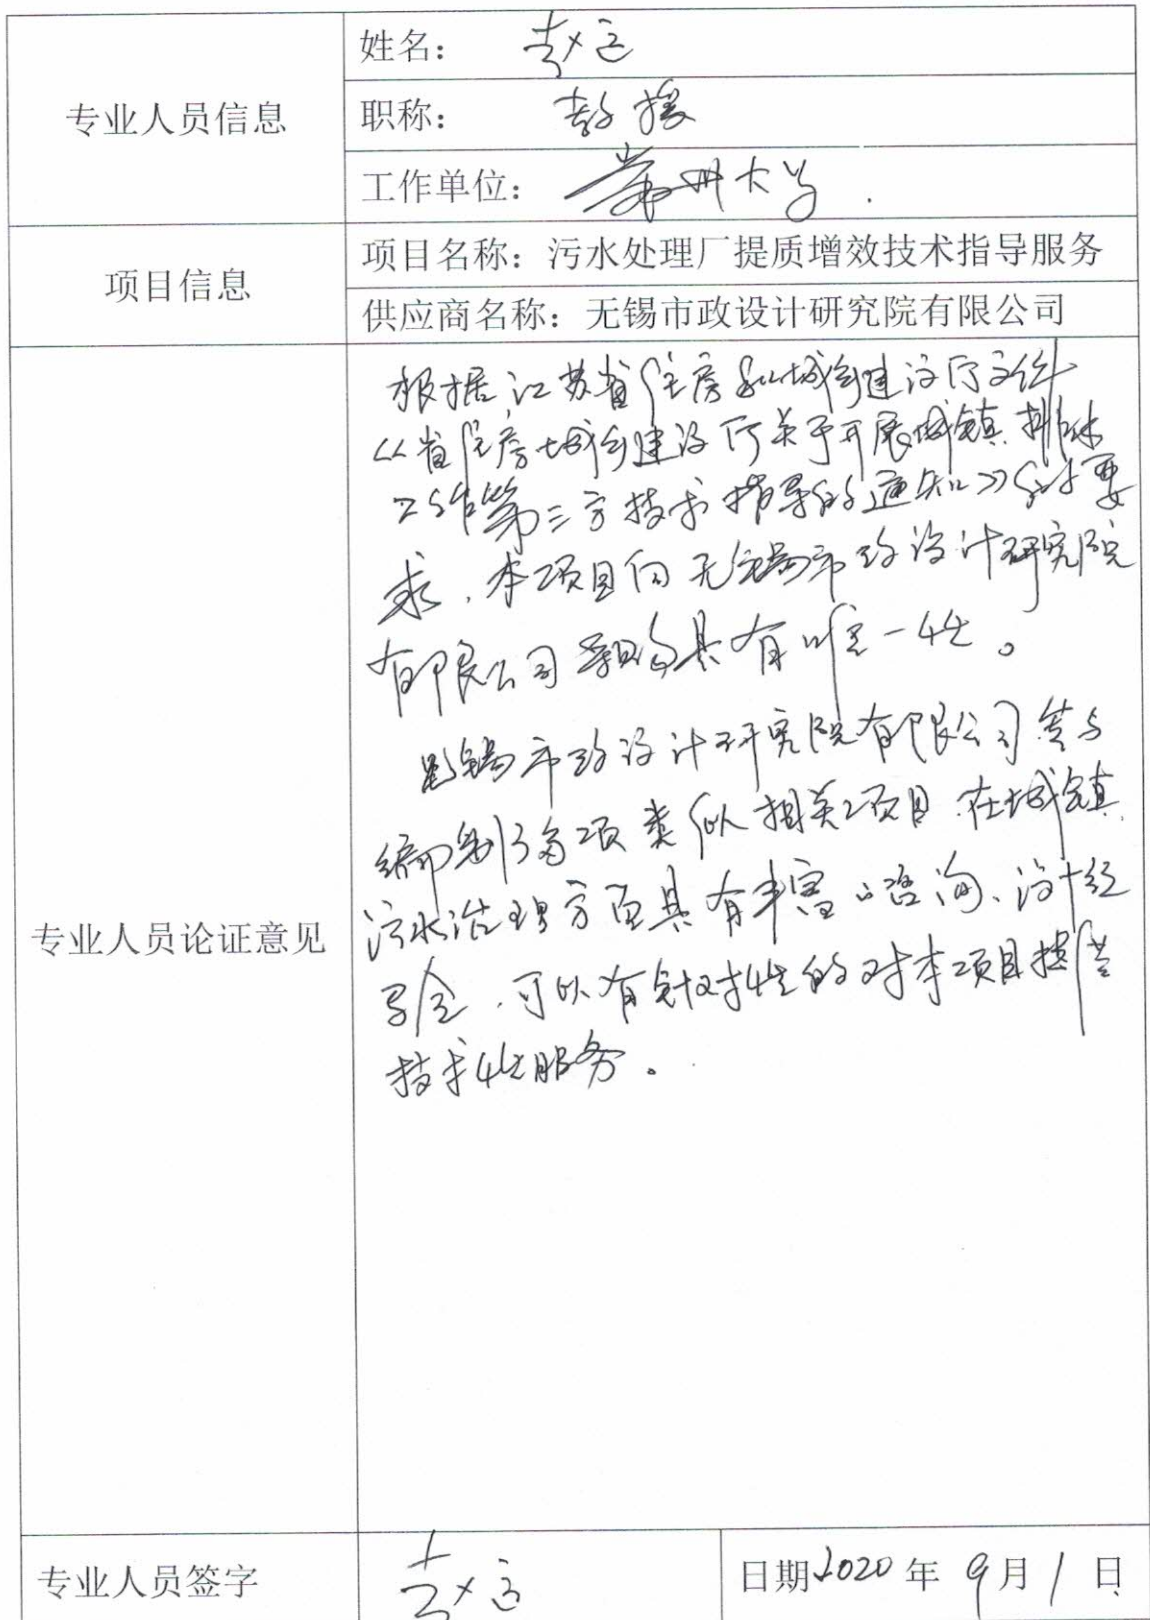 专业人员信息
姓名：赵远
职称：教授
工作单位：常州大学
项目信息
项目名称：污水处理厂提质增效技术指导服务
供应商名称：无锡市政设计研究院有限公司
专业人员论证意见
根据江苏省住房和城乡建设厅文件
《省住房城乡建设厅关于开展城镇排水
工作第三方技术指导的通知》的要
求，本项目向无锡市政设计研究院
有限公司采购具有唯一性。
无锡市政设计研究院有限公司参与
编制了多项类似相关项目，在城镇
污水治理方面具有丰富的咨询、设计经
验，可以有针对性的对本项目提供
技术性服务。
专业人员签字
赵远
日期2020年9月1日